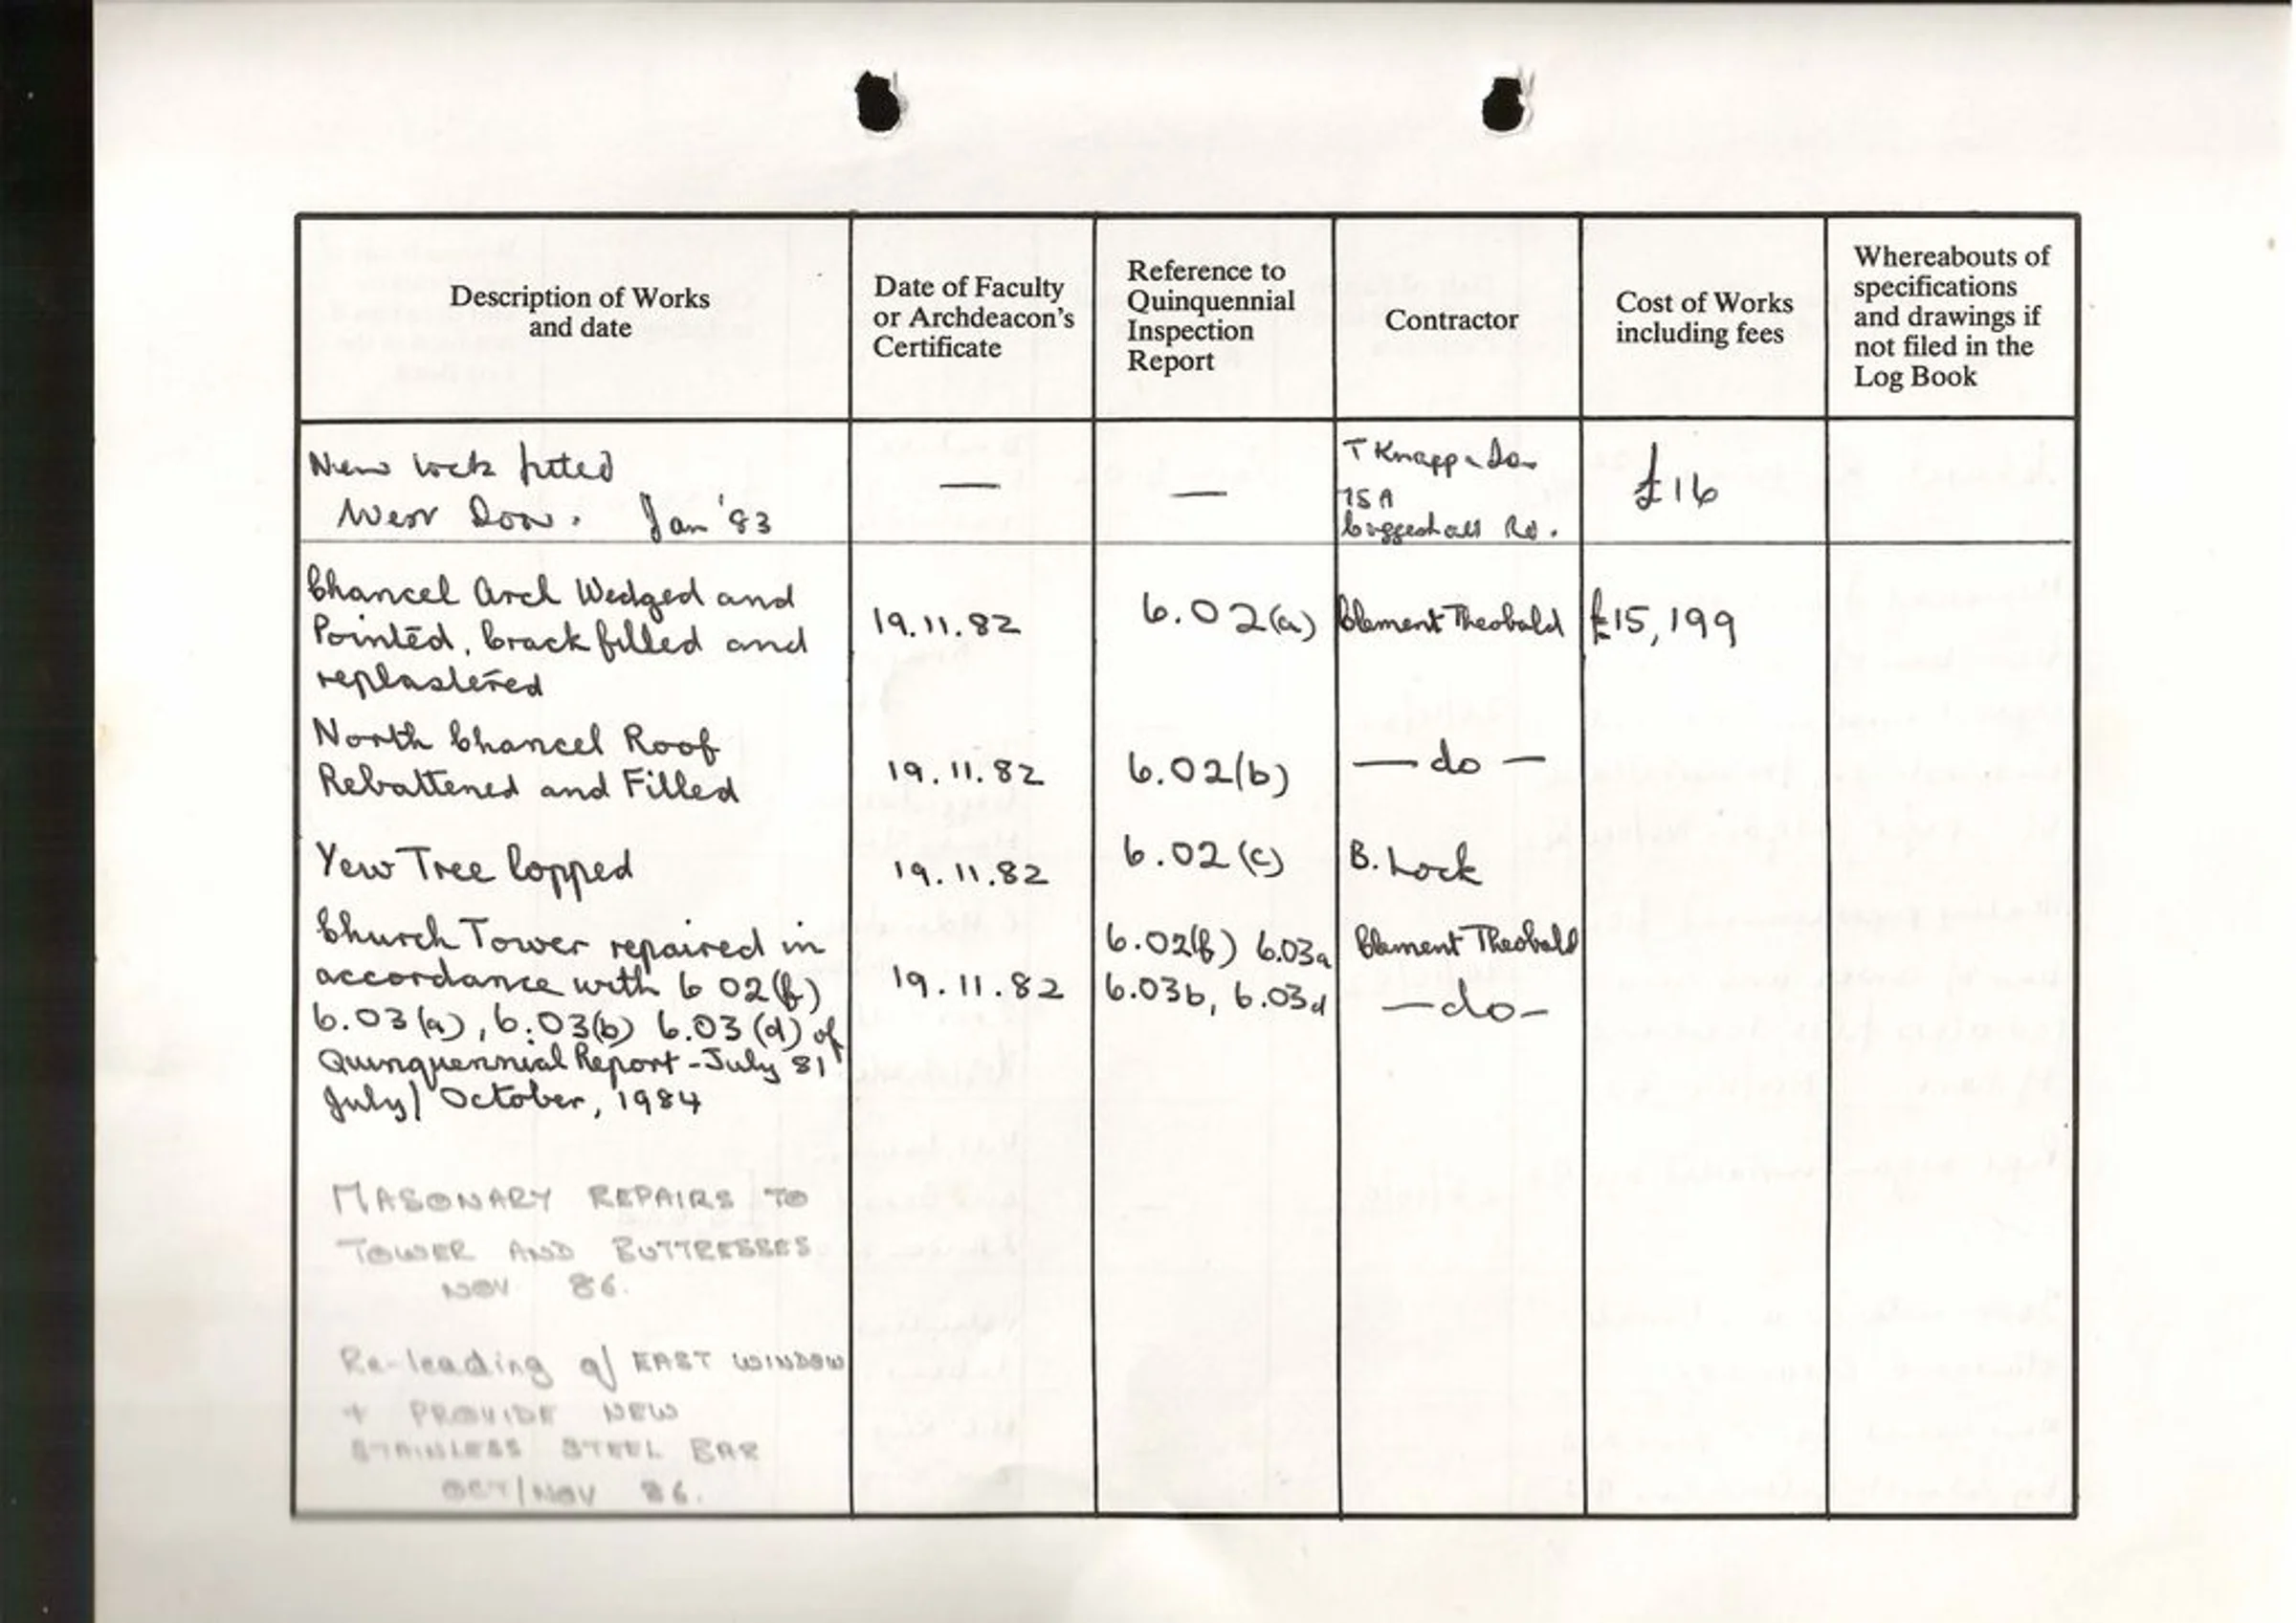 Description of Works
and date
Date of Faculty
or Archdeacon's
Certificate
Reference to
Quinquennial
Inspection
Report
Contractor
Cost of Works
including fees
Whereabouts of
specifications
and drawings if
not filed in the
Log Book
New lock fitted
West Door. Jan '83
—
—
T Knapp & Son
75A
Coggeshall Rd.
£16
Chancel Arch Wedged and
Pointed, Crack filled and
replastered
19.11.82
6.02(a)
Clement Theobald
£15,199
North Chancel Roof
Rebattened and Filled
19.11.82
6.02(b)
— do —
Yew Tree lopped
19.11.82
6.02(c)
B. Lock
Church Tower repaired in
accordance with 6 02(f)
6.03(a), 6.03(b) 6.03(d) of
Quinquennial Report - July 81
July/October, 1984
19.11.82
6.02(f) 6.03a
6.03b, 6.03d
Clement Theobald
—do—
MASONARY REPAIRS TO
TOWER AND BUTTRESSES
NOV 86.
Re-leading of EAST WINDOW
+ PROVIDE NEW
STAINLESS STEEL BAR
OCT/NOV 86.